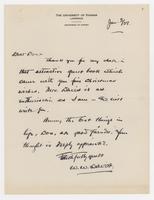 THE UNIVERSITY OF KANSAS
LAWRENCE
Jan 9/38
Dear Don:
Thank you for my share in
that attractive guest book which
came with you fine Christmas
wishes. Mrs. Davis is as
enthusiastic as I am - she will
write too.
Among the best things in
life, Don, are good friends. Your
thought is deeply appreciated.
Faithfully yours
W.W. Davis